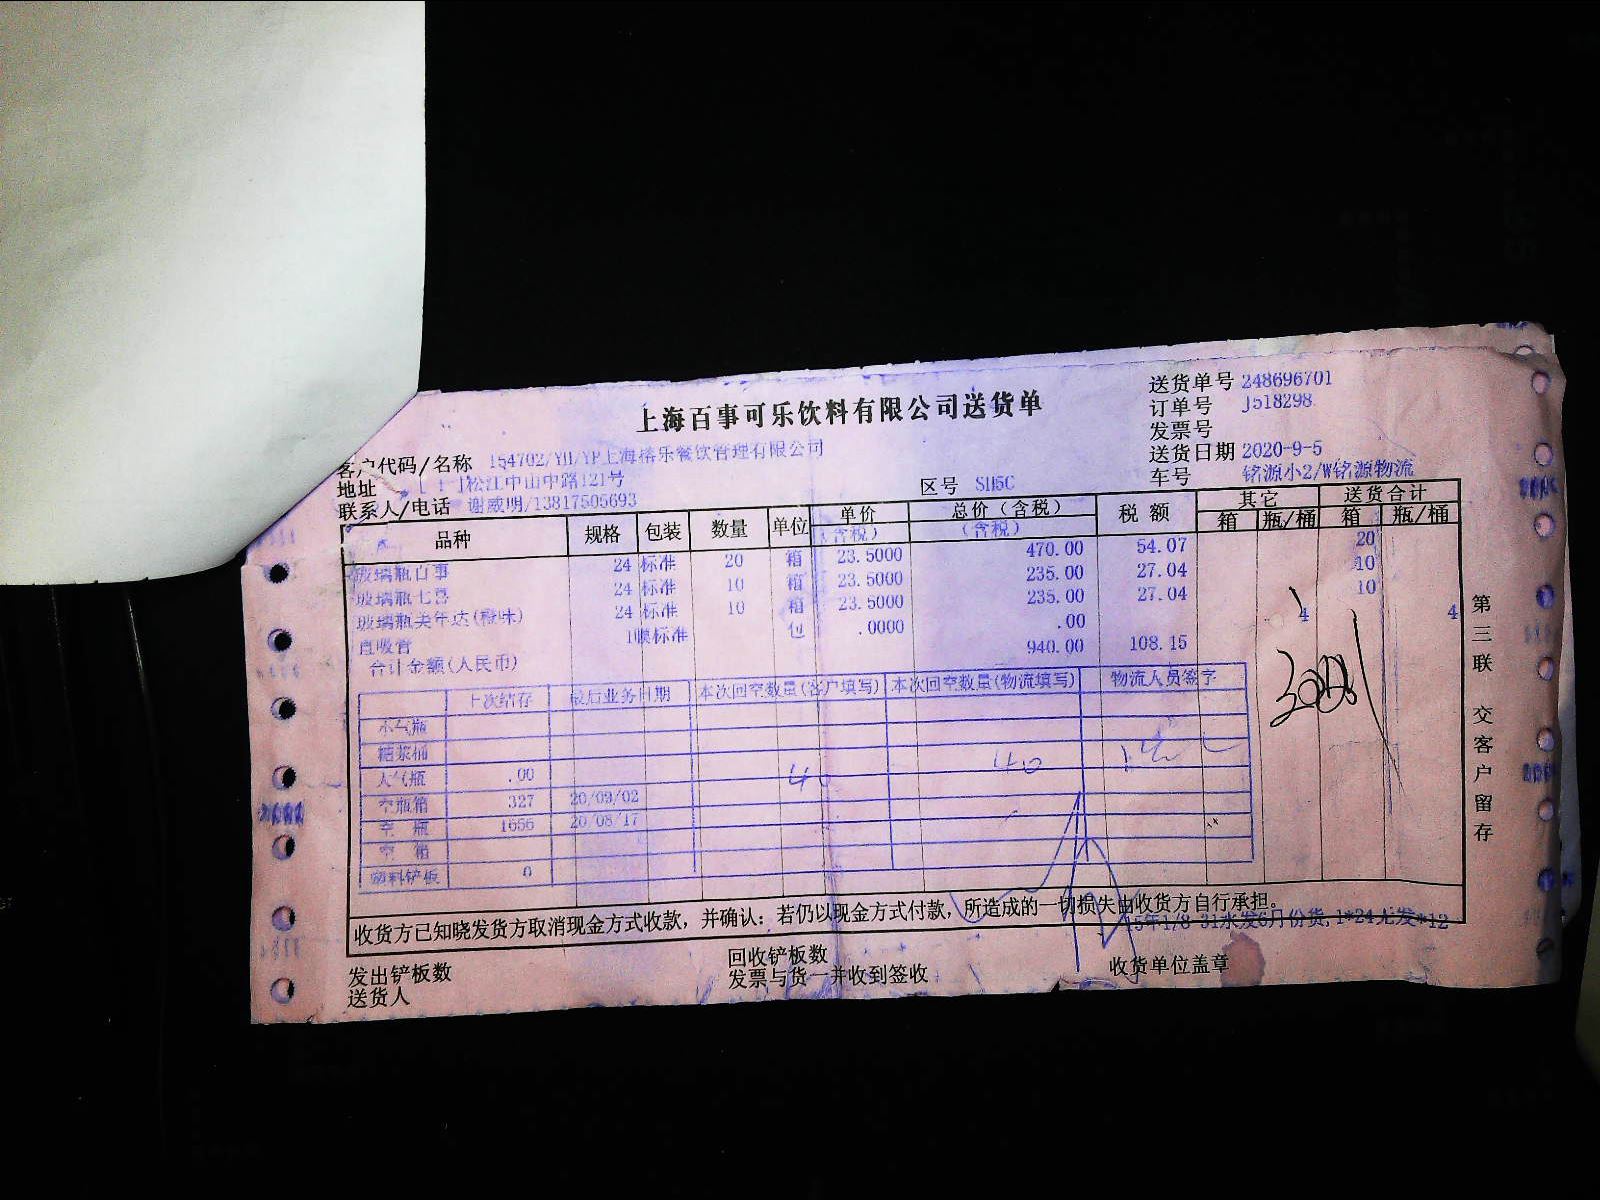 上海百事可乐饮料有限公司送货单
送货单号 248696701
订单号 J518298
发票号
送货日期 2020-9-5
车号 铭源小2/W铭源物流
客户代码/名称 154702/YH/YP上海榕乐餐饮管理有限公司
地址 松江中山中路121号
区号 SH5C
联系人/电话 谢威明/13817505693
品种 规格 包装 数量 单位 单价(含税) 总价(含税) 税额 其它 送货合计
(含税) 箱 瓶/桶 箱 瓶/桶
玻璃瓶百事 24 标准 20 箱 23.5000 470.00 54.07 20
玻璃瓶七喜 24 标准 10 箱 23.5000 235.00 27.04 10
玻璃瓶美年达(橙味) 24 标准 10 箱 23.5000 235.00 27.04 10
直吸管 1 标准 包 .0000 .00 4 4
合计金额(人民币) 940.00 108.15
上次结存 最后业务日期 本次回空数量(客户填写) 本次回空数量(物流填写) 物流人员签字
小气瓶
糖浆桶
大气瓶 .00 40 40
空瓶箱 327 20/09/02
空瓶 1656 20/08/17
空箱
塑料铲板 0
收货方已知晓发货方取消现金方式收款，并确认：若仍以现金方式付款，所造成的一切损失由收货方自行承担。
15年1/8-31水发6月份货,1*24无发*12
发出铲板数 回收铲板数
送货人 发票与货一并收到签收 收货单位盖章
第三联 交客户留存